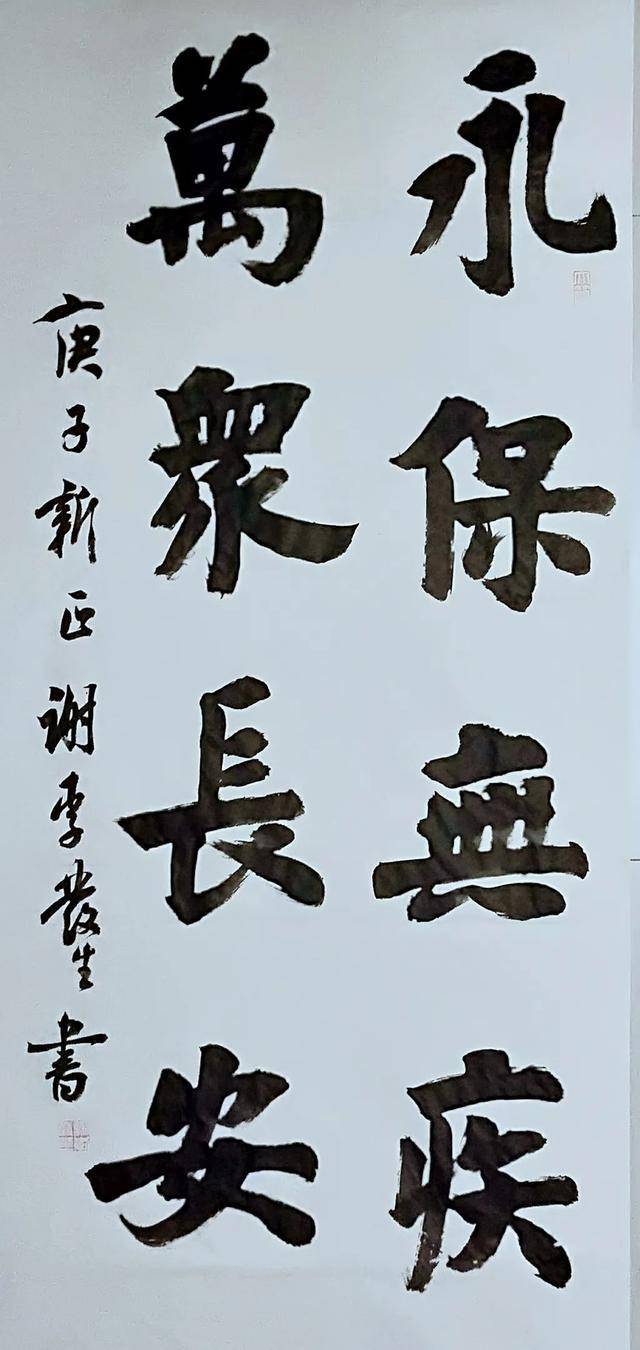 永保無疾
萬眾長安
庚子新正謝李發生書